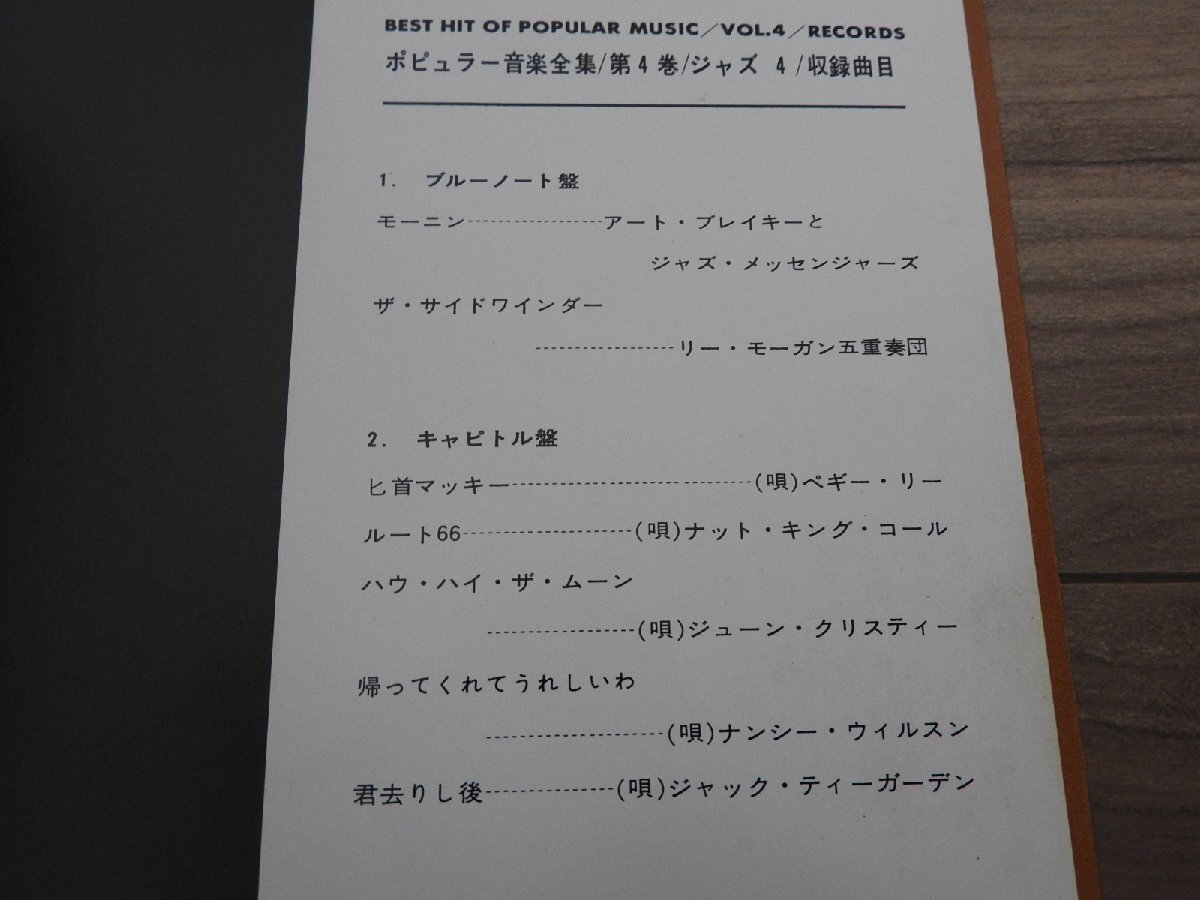 BEST HIT OF POPULAR MUSIC/VOL.4/RECORDS
ポピュラー音楽全集/第4巻/ジャズ 4/収録曲目
1. ブルーノート盤
モーニン------------------アート・ブレイキーと
ジャズ・メッセンジャーズ
ザ・サイドワインダー
------------------リー・モーガン五重奏団
2. キャピトル盤
匕首マッキー--------------------------------(唄)ペギー・リー
ルート66----------------------(唄)ナット・キング・コール
ハウ・ハイ・ザ・ムーン
-------------------(唄)ジューン・クリスティー
帰ってくれてうれしいわ
-----------------------(唄)ナンシー・ウィルスン
君去りし後----------------(唄)ジャック・ティーガーデン